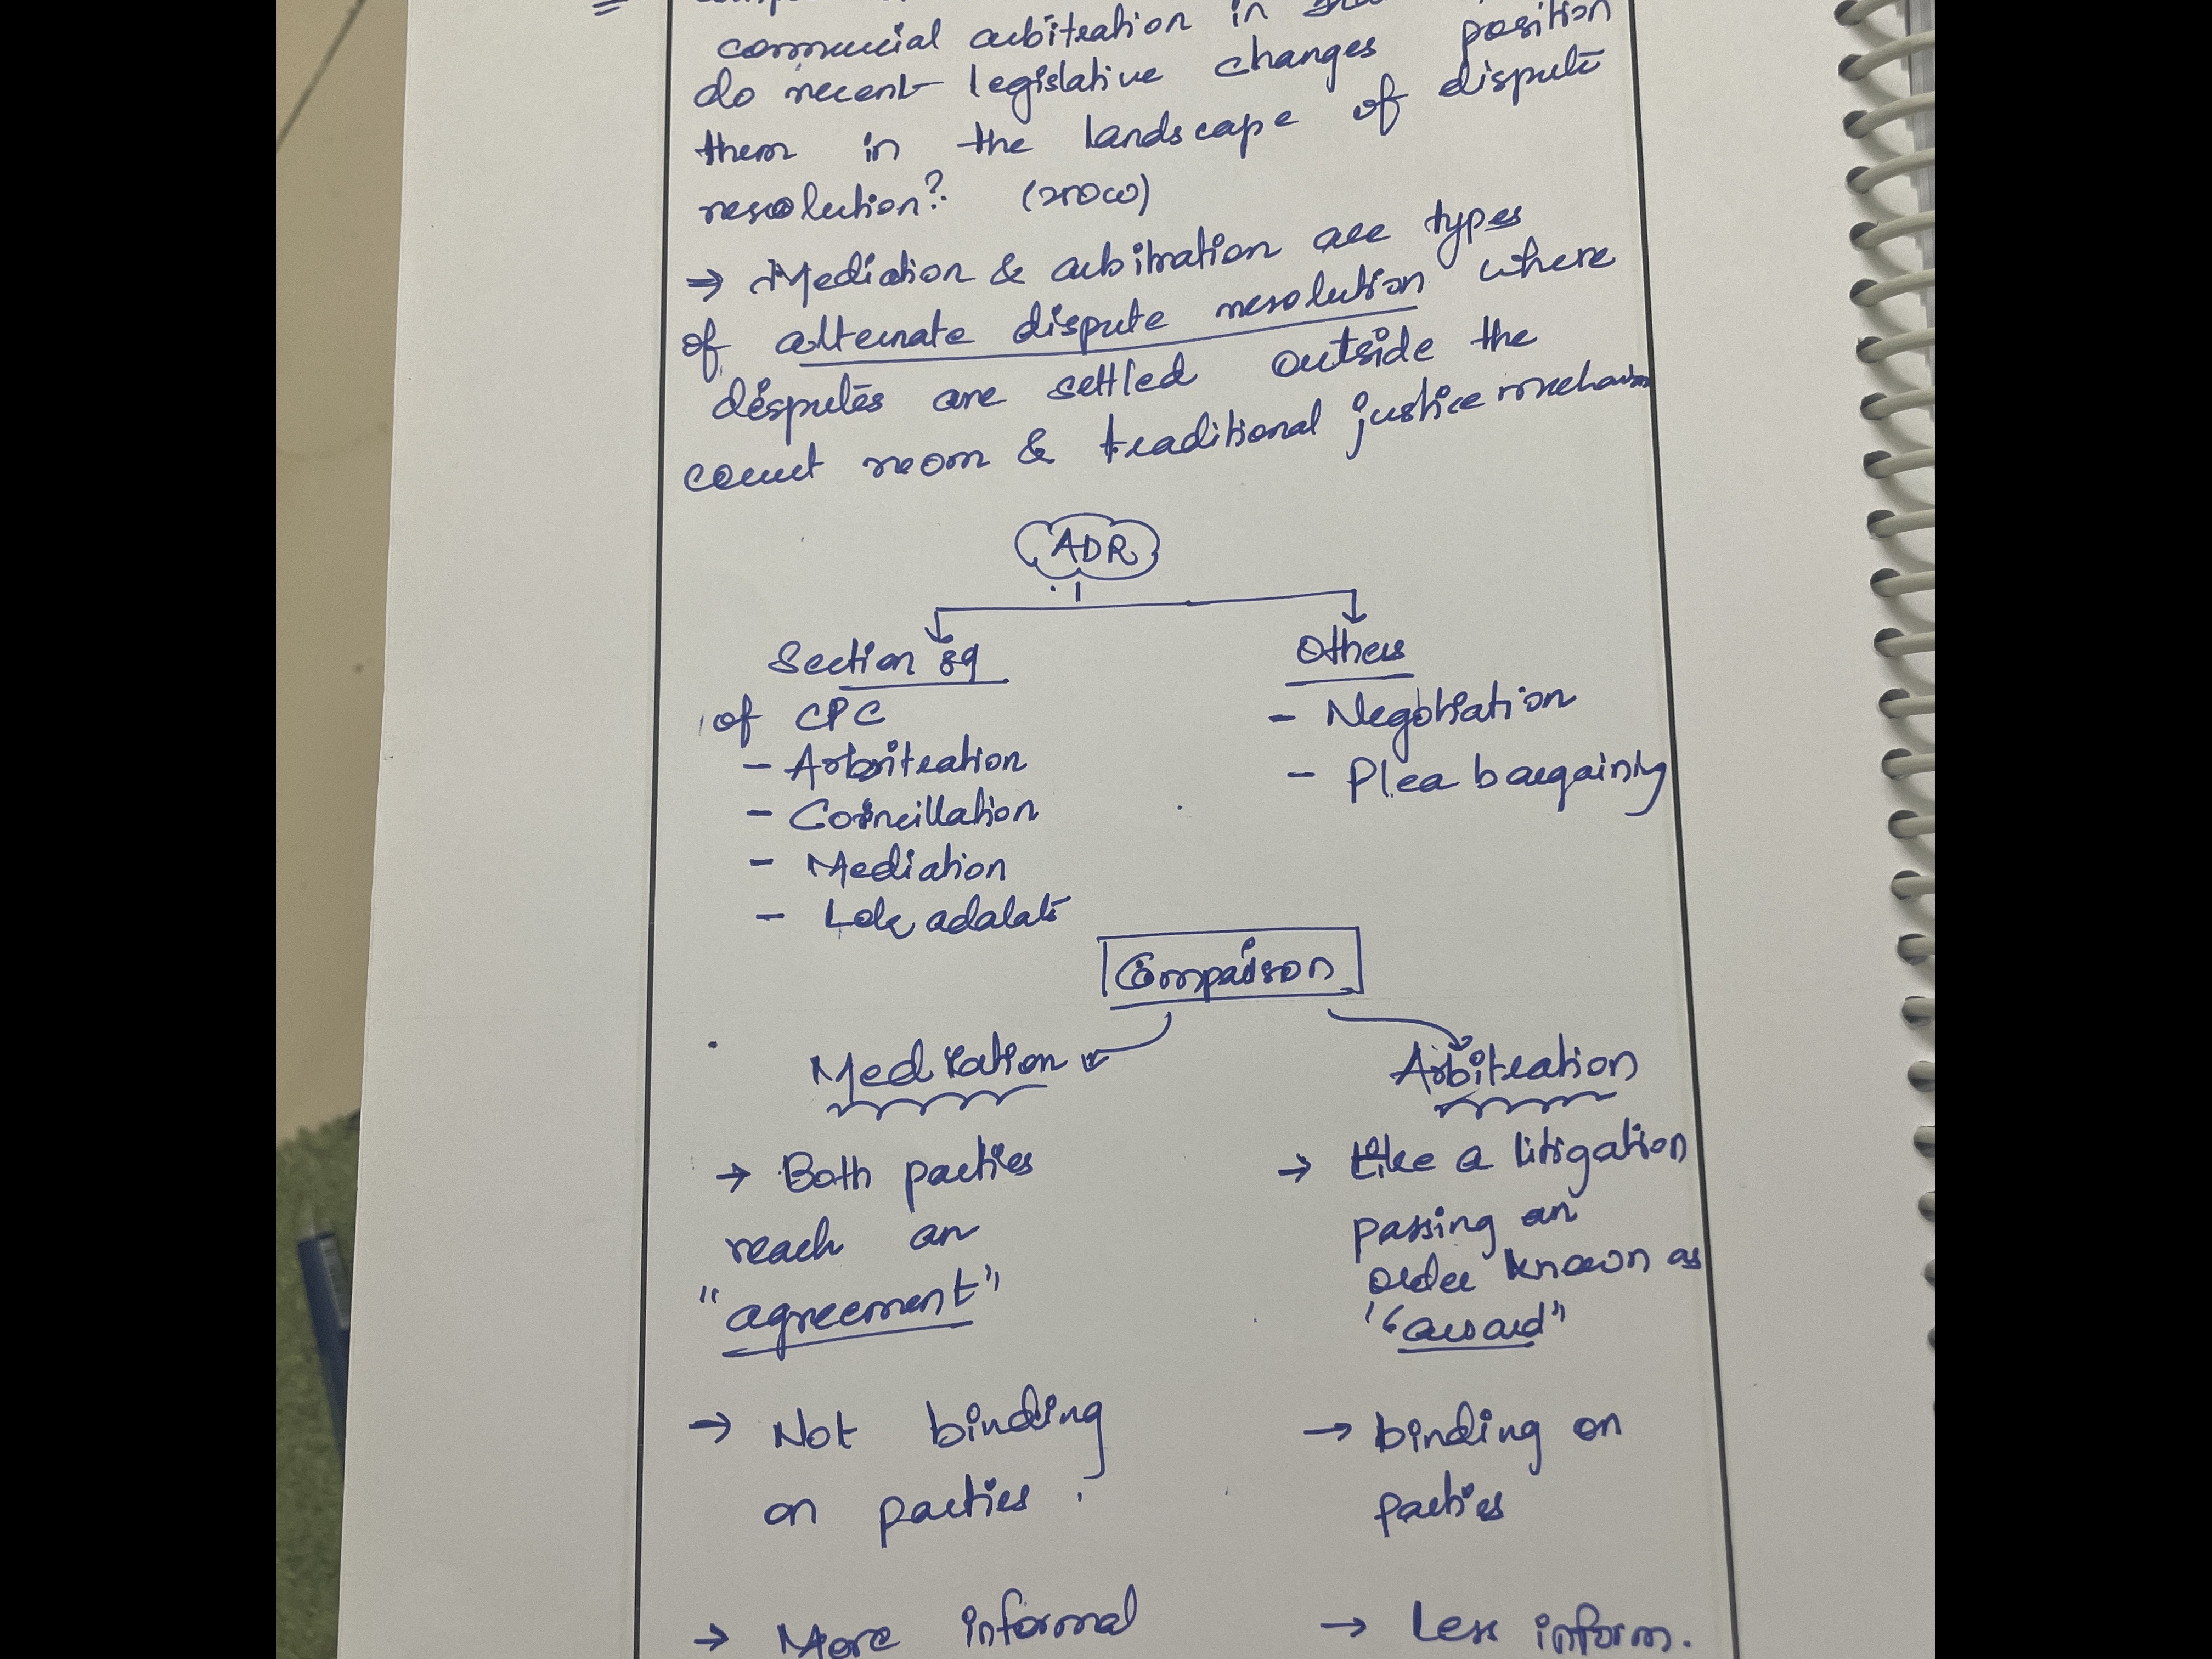 commercial arbitration in
do recent legislative changes position
them in the landscape of dispute
resolution? (250w)
→ Mediation & arbitration are types
of alternate dispute resolution where
disputes are settled outside the
court room & traditional justice
ADR
Section 89
of CPC
- Arbitration
- Coincillation
- Mediation
- Lok adalats
Others
- Negotiation
- Plea bargaining
Comparison
Mediation
→ Both parties
reach an
"agreement"
→ Not binding
on parties.
→ More informal
Arbitration
→ Like a litigation
passing an
order known as
"award"
→ binding on
parties
→ Less inform.